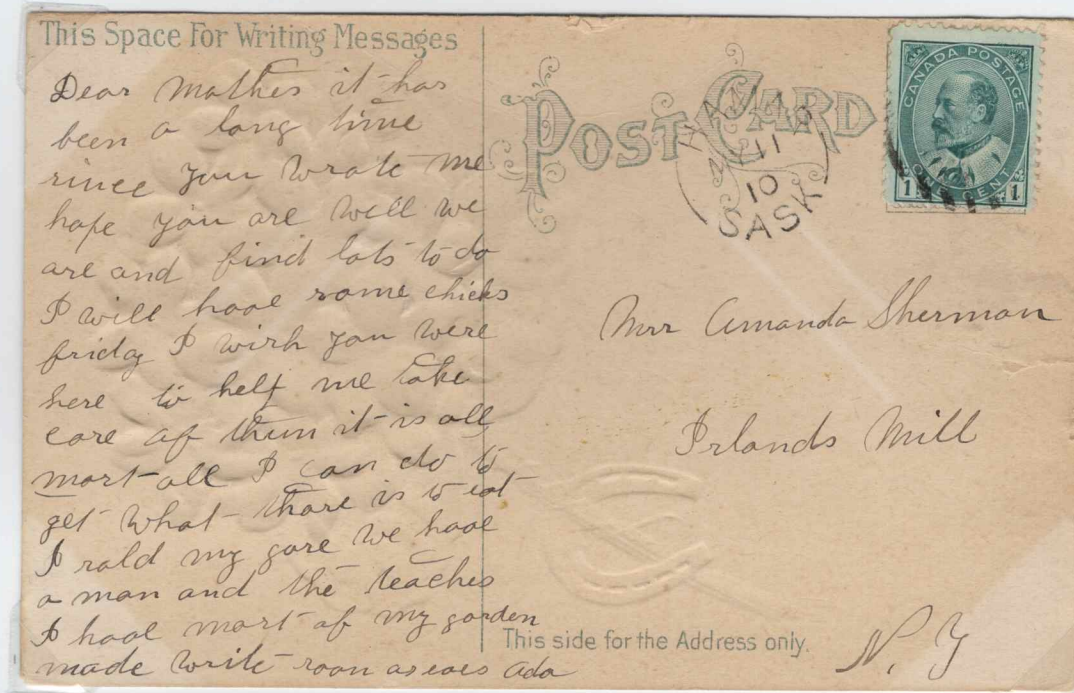 This Space For Writing Messages
Dear Mother it has
been a long time
since you wrote me
hope you are well we
are and find lots to do
I will have some chicks
friday I wish you were
here to help me take
care of them it is all
most all I can do to
get what thare is to eat
I sold my
we have
a man and the teacher
I have most of my garden
made write soon as ever Ada
POST CARD
11
10
SASK
CANADA POSTAGE
1 CENT 1
Mrs Amanda Sherman
Irlands Mill
N. Y
This side for the Address only.